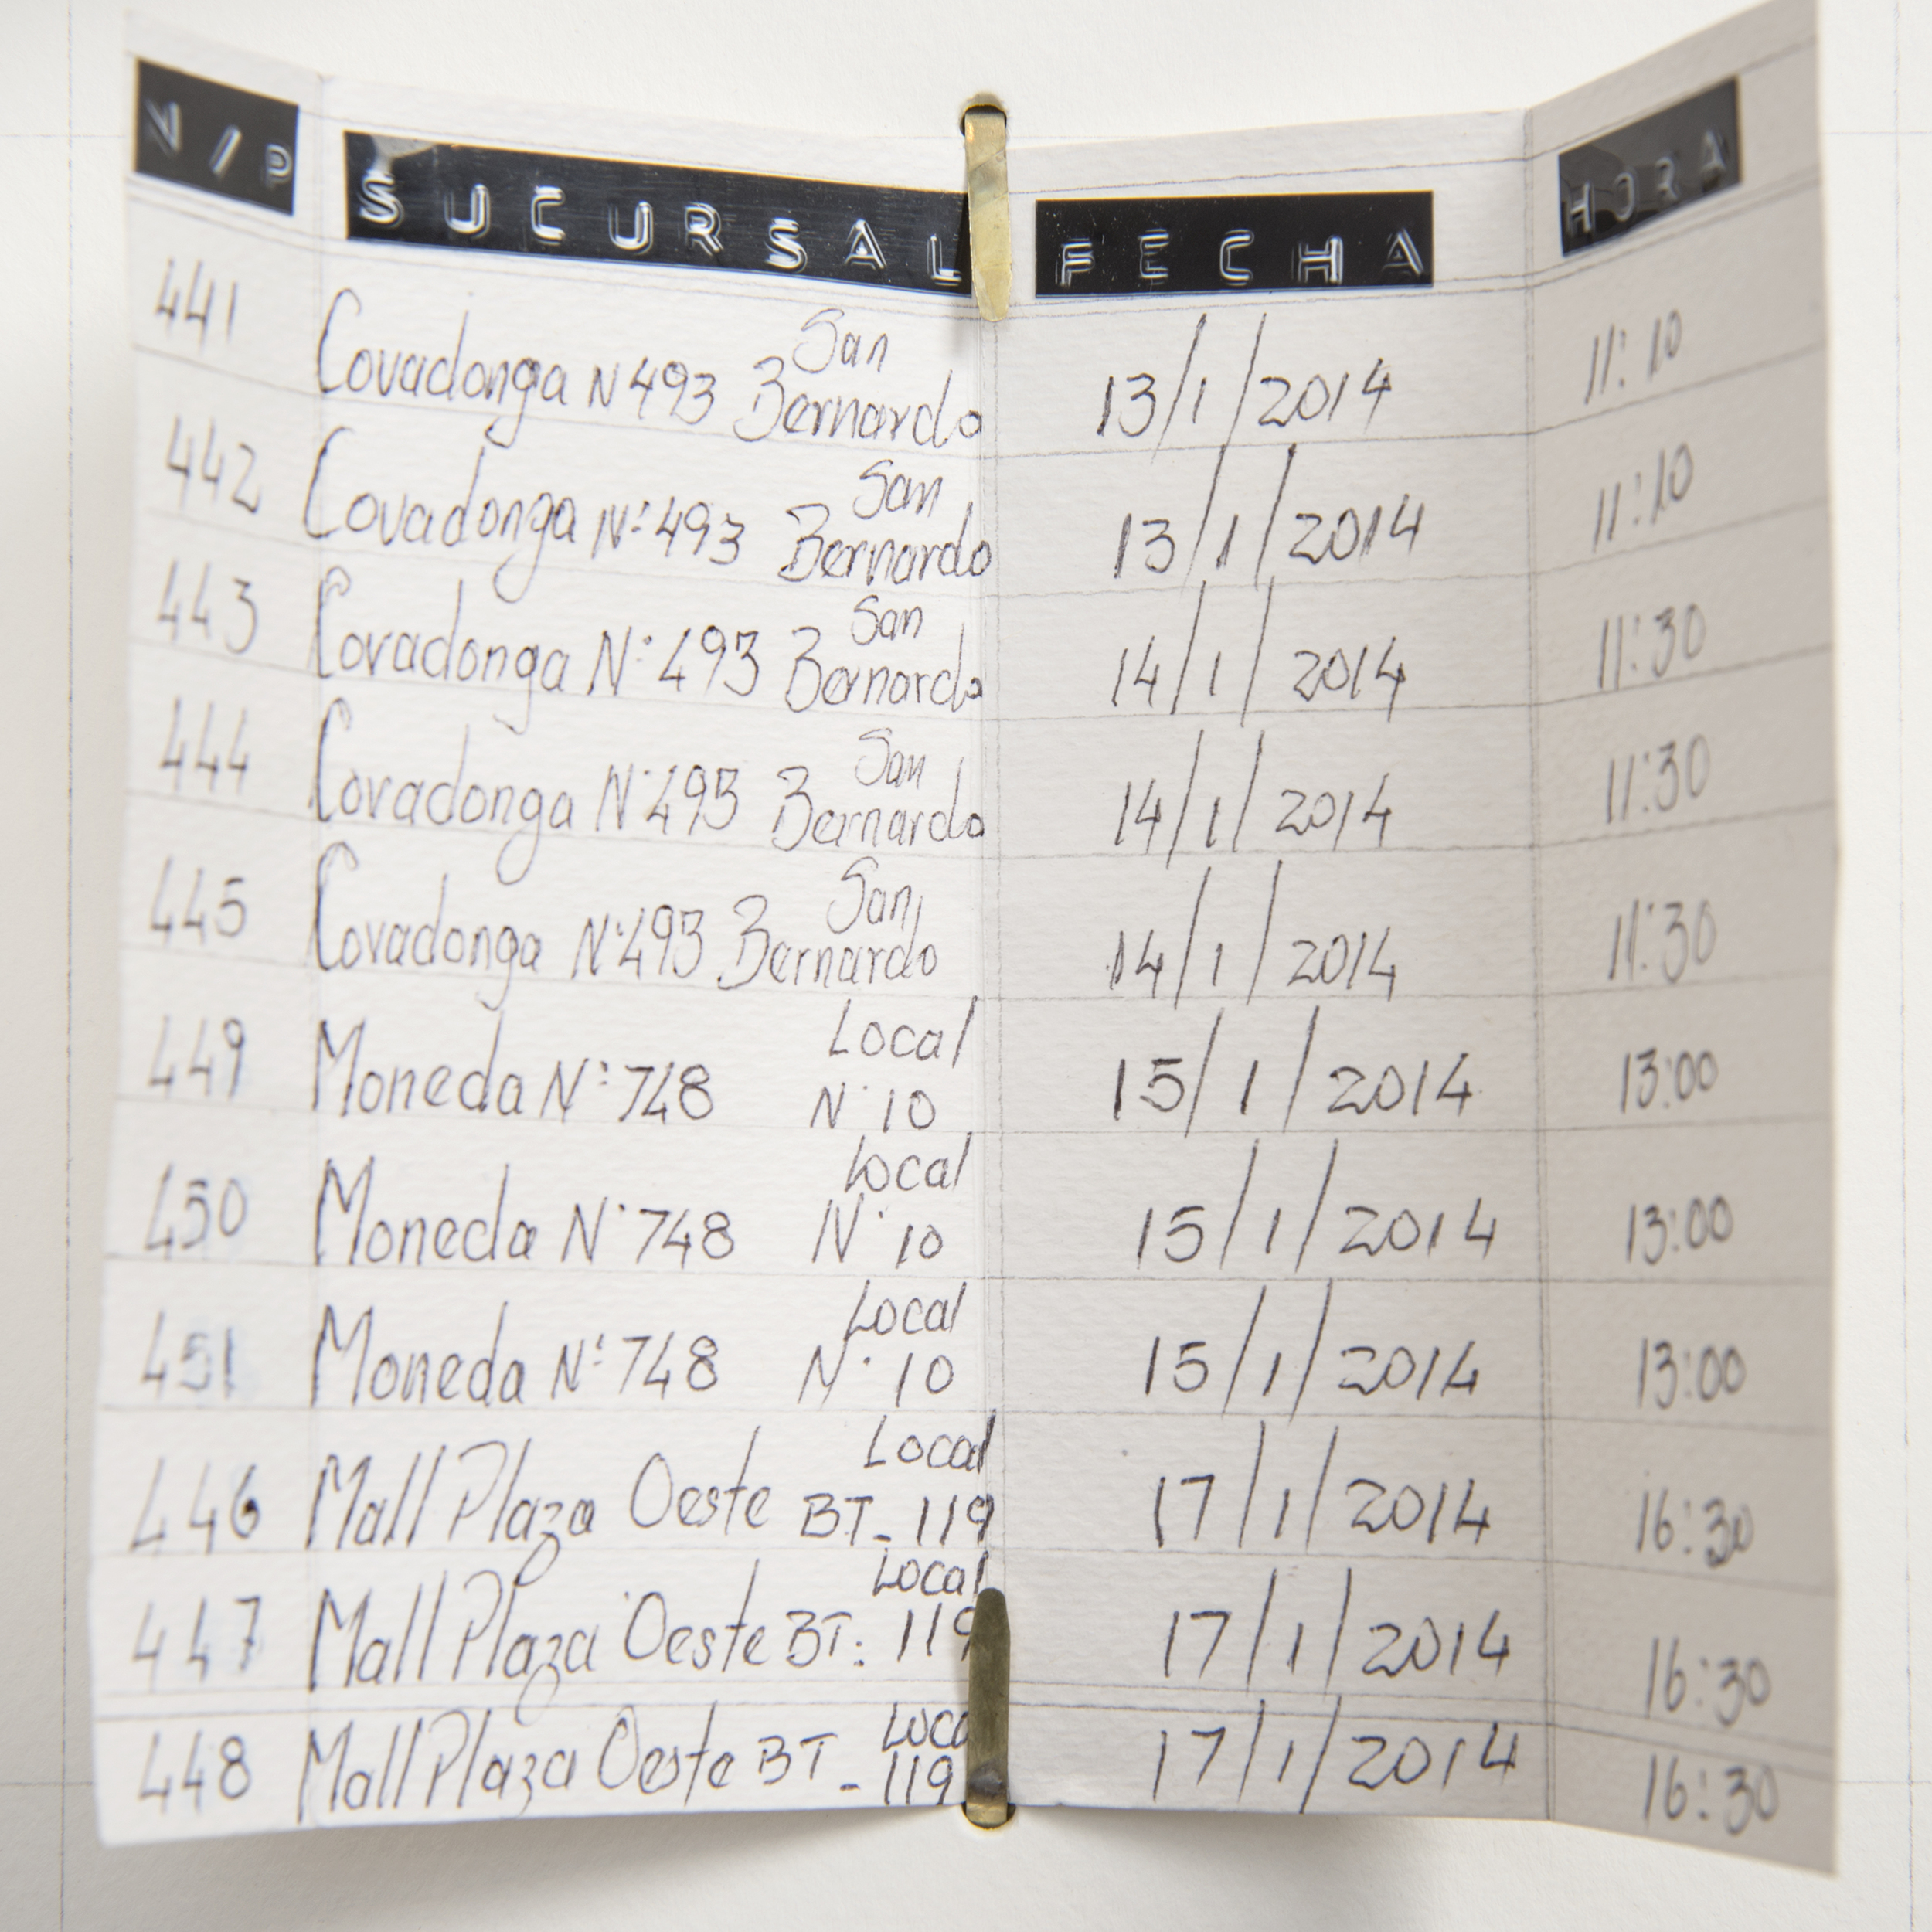 N/P SUCURSAL FECHA HORA
441 Covadonga N 493 San Bernardo 13/1/2014 11:10
442 Covadonga N° 493 San Bernardo 13/1/2014 11:10
443 Covadonga N° 493 San Bernardo 14/1/2014 11:30
444 Covadonga N° 493 San Bernardo 14/1/2014 11:30
445 Covadonga N° 493 San Bernardo 14/1/2014 11:30
449 Moneda N° 748 Local N° 10 15/1/2014 13:00
450 Moneda N° 748 Local N° 10 15/1/2014 13:00
451 Moneda N° 748 Local N° 10 15/1/2014 13:00
446 Mall Plaza Oeste Local BT-119 17/1/2014 16:30
447 Mall Plaza Oeste Local BT: 119 17/1/2014 16:30
448 Mall Plaza Oeste Local BT-119 17/1/2014 16:30